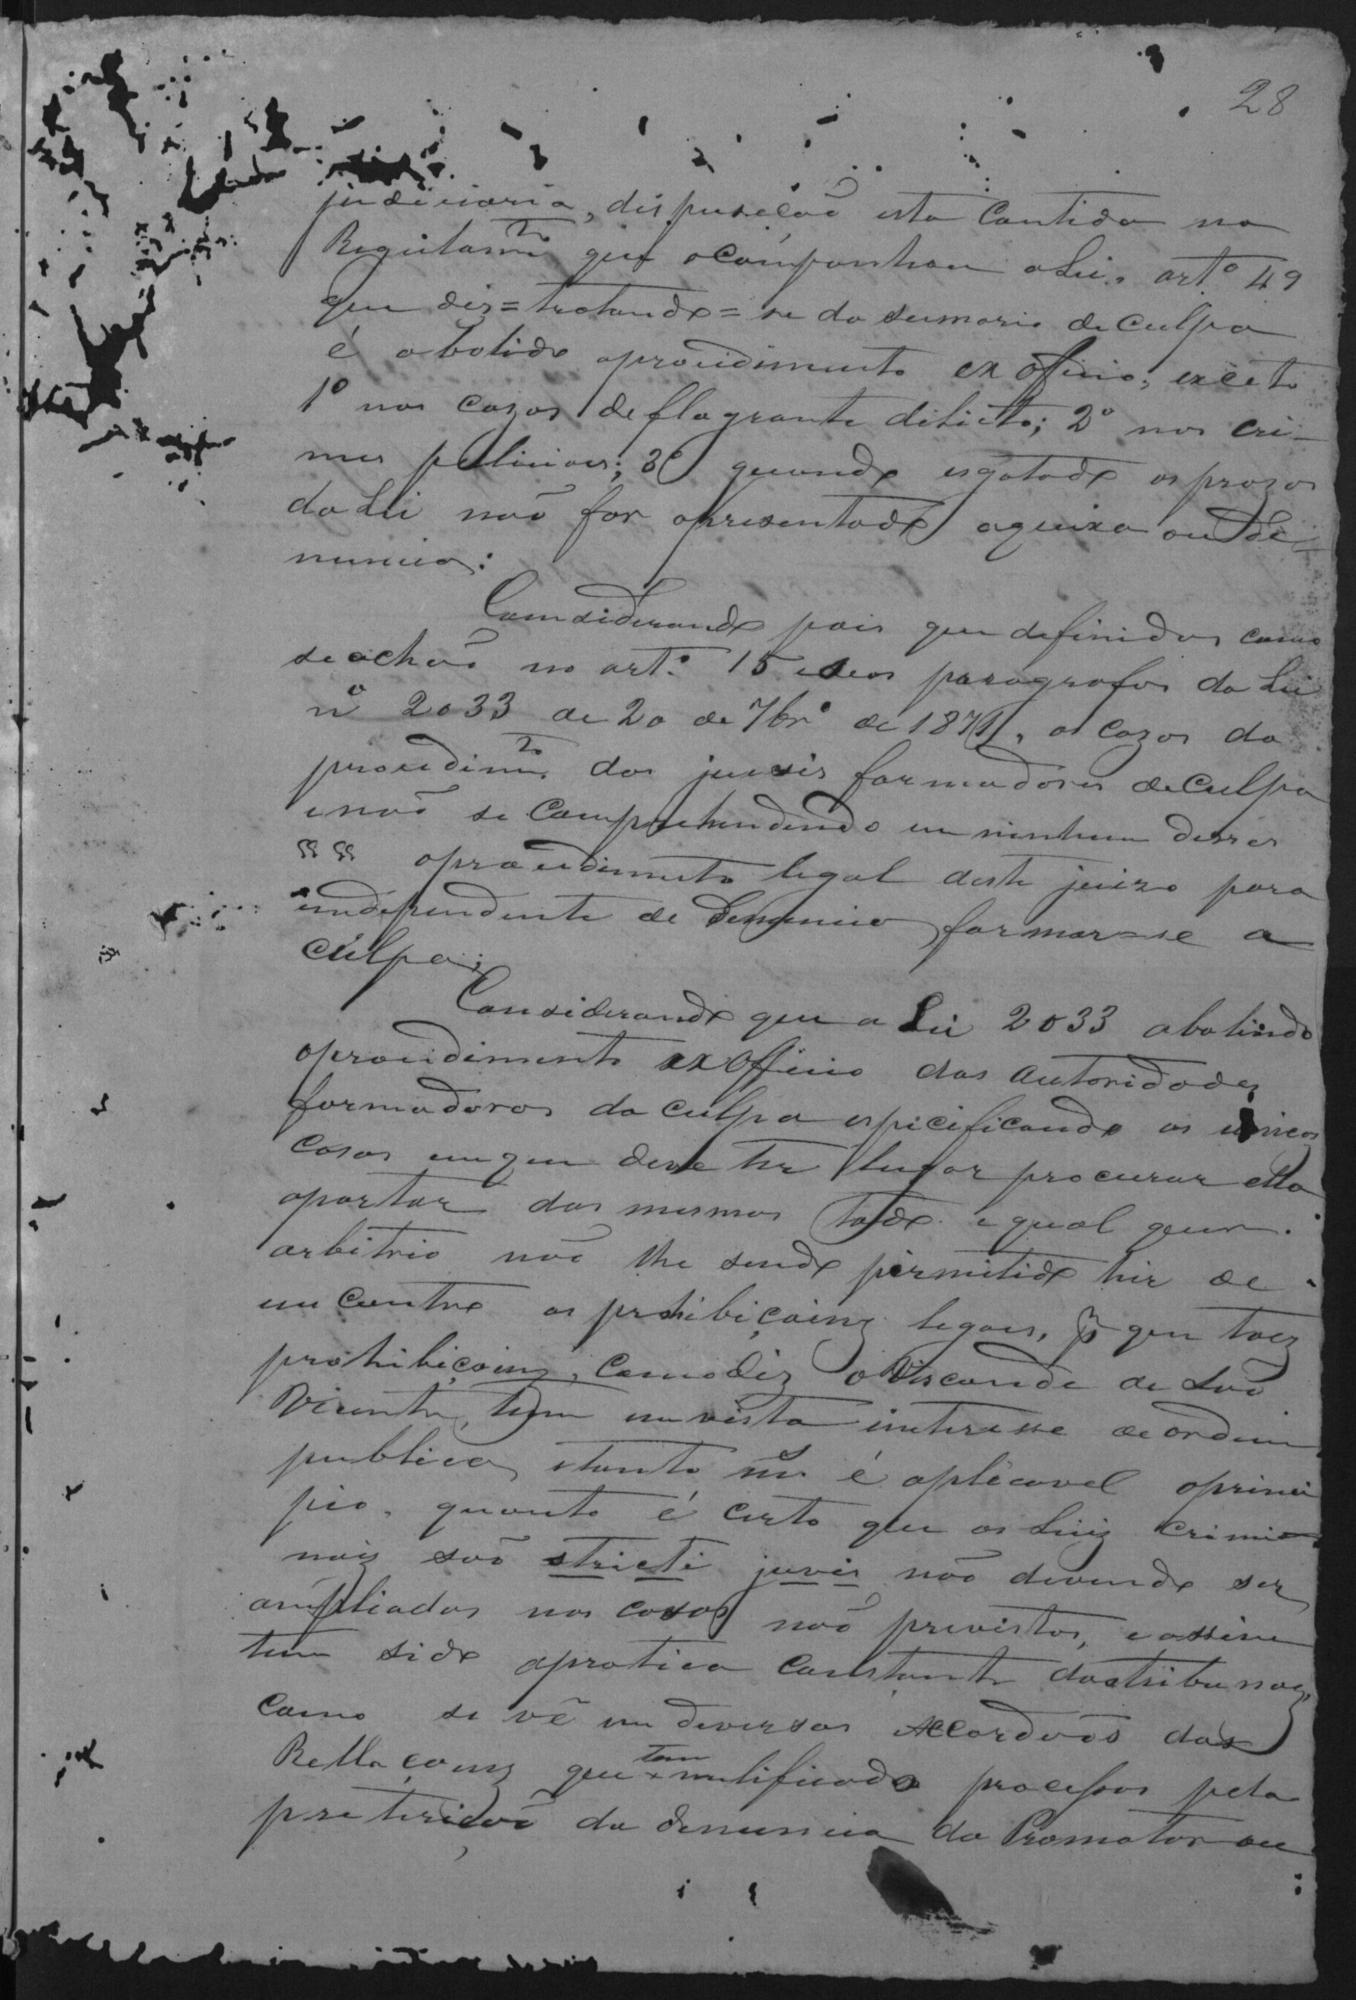 28
judiciaria, dispusição esta contida no
Regulamto que acompanhou a Lei, artº 49
que diz = tratando = se do sumario de culpa
é abolido o procidimento ex officio, exceto
1º nos cazos de flagrante dilicto; 2º nos cri-
mes policiaes; 3º quando esgotado os prazos
da Lei não for apresentado a queixa ou de-
nuncia:
Considerando pois que definidos como
se achão no art.º 15 e seos paragrafos da Lei
nº 2033 de 20 de 7brº de 1871, os cazos do
procedimto dos juises formadores de culpa
e não se comprehendendo em ninhum desses
§§ §§ o procedimento legal deste juizo para
independente de denuncia formar-se a
culpa;
Considerando que a Lei 2033 abolindo
o procedimento ex officio das autoridades
formadoras da culpa espicificando os unicos
casos em que deve ter lugar procurar ella
apartar das mesmas todo e qual quer
arbitrio não lhe sendo permitido hir de
encontro as prohibiçoins legaes, p que taes
prohibiçoins, como diz o Visconde de São
Vicente, tem em vista interesse de ordem
publica, e tanto não é aplicavel o princi
pio, quanto é certo que as Leiz crimi-
naiz são stricti juris não devendo ser
ampliadas nos casos não previstos, e assim
tem sido a pratica constante dos tribunaes,
como se vê em diversos Accordãos das
Rellaçoins que tem nulificado processos pela
preterição da denuncia do Promotor ou